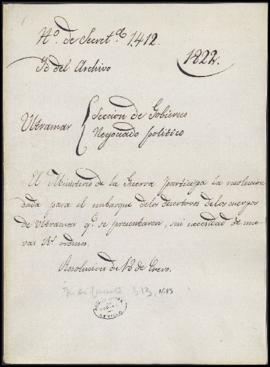 Nº. de Secretª. 1.412.
1822.
Id del Archivo
Ultramar { Seccion de Gobierno
Negociado politico
El Ministerio de la Guerra participa la resolucion
dada para el embarque de los desertores de los cuerpos
de Ultramar qᵉ. se presentaren, sin necesidad de nue-
vas Rˢ. ordenes.
Resolucion de 13 de Enero.
SEVILLA